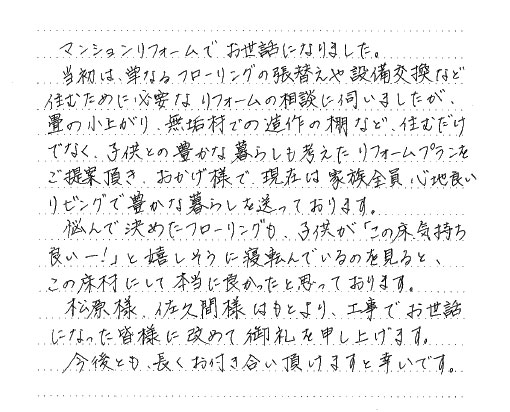 マンションリフォームでお世話になりました。
当初は、単なるフローリングの張替えや設備交換など
住むために必要なリフォームの相談に伺いましたが、
畳の小上がり、無垢材での造作の棚など、住むだけ
でなく、子供との豊かな暮らしも考えたリフォームプランを
ご提案頂き、おかげ様で、現在は家族全員心地良い
リビングで豊かな暮らしを送っております。
悩んで決めたフローリングも、子供が「この床気持ち
良いー!」と嬉しそうに寝転んでいるのを見ると、
この床材にして本当に良かったと思っております。
松原様、佐久間様はもとより、工事でお世話
になった皆様に改めて御礼を申し上げます。
今後とも、長くお付き合い頂けますと幸いです。